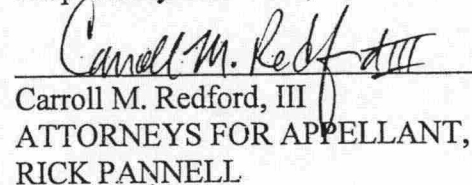 Carroll M. Redford III
Carroll M. Redford, III
ATTORNEYS FOR APPELLANT,
RICK PANNELL